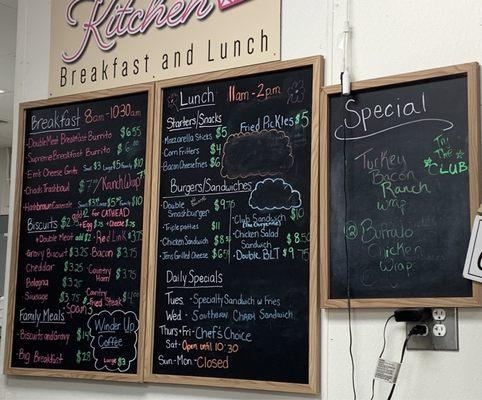 Kitchen
Breakfast and Lunch
Breakfast 8am-10:30am
Double Meat Breakfast Burrito $6.55
Supreme Breakfast Burrito
Chad's Trashbowl
Biscuits
Double Meat add $2
Red Link 3.75
Gravy Biscuit $3.25
Bacon $3.75
Cheddar $3.25
Country
Ham $3.75
Bologna $3.25
Sausage $3.75
Country
Fried Steak $4.00
Family Meals
Biscuits and Gravy
Big Breakfast $28
Winder Up
Coffee
Large $3
Lunch 11am-2pm
Starters/Snacks
Mozzarella Sticks $5
Corn Fritters $4
Bacon Cheese Fries $6
Fried Pickles $5
Burgers/Sandwiches
Double
Smashburger $9.75
Triple patties $11
Chicken Sandwich $8.5
Jens Grilled Cheese $6.5
Club Sandwich $10
Chicken Salad
Sandwich $8.50
Double BLT $9.75
Daily Specials
Tues. - Specialty Sandwich w/ Fries
Wed - Southern Charm Sandwich
Thurs-Fri-Chef's Choice
Sat - Open until 10:30
Sun-Mon-Closed
Special
Turkey
Bacon
Ranch
Wrap
Try
THE
CLUB
Buffalo
Chicken
Wrap